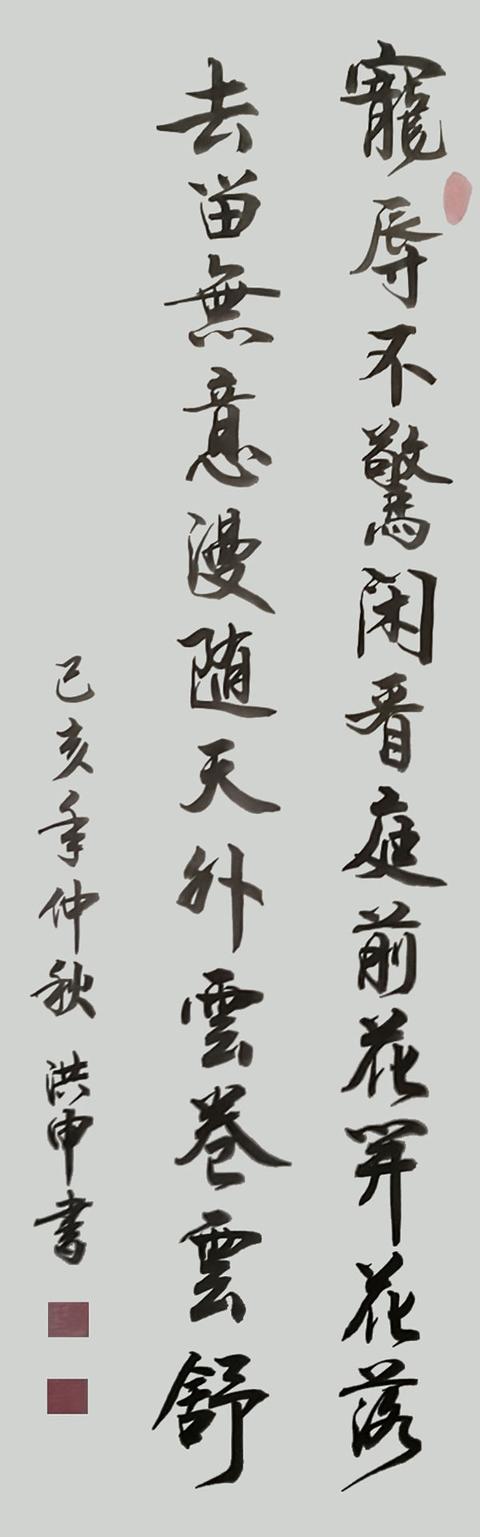 寵辱不驚闲看庭前花開花落
去留無意漫随天外雲卷雲舒
己亥年仲秋 洪申書